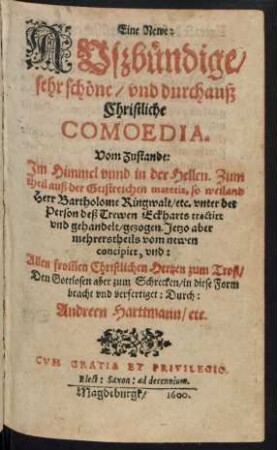 Eine Newe:
AUszbündige/
sehr schöne/ vnd durchauß
Christliche
COMOEDIA.
Vom Zustande:
Im Himmel vnnd in der Hellen. Zum
theil auß der Geistreichen materia, so weiland
Herr Bartholome Ringwalt/etc. vnter der
Person deß Trewen Eckharts tractirt
vnd gehandelt/gezogen. Jetzo aber
mehrerstheils vom newen
concipirt, vnd:
Allen frommen Christlichen Hertzen zum Trost/
Den Gottlosen aber zum Schrecken/in diese Form
bracht vnd verfertiget: Durch:
Andreen Harttmann/ etc.
CVM GRATIA ET PRIVILEGIO.
Elect: Saxon: ad decennium.
Magdeburgk/ 1600.